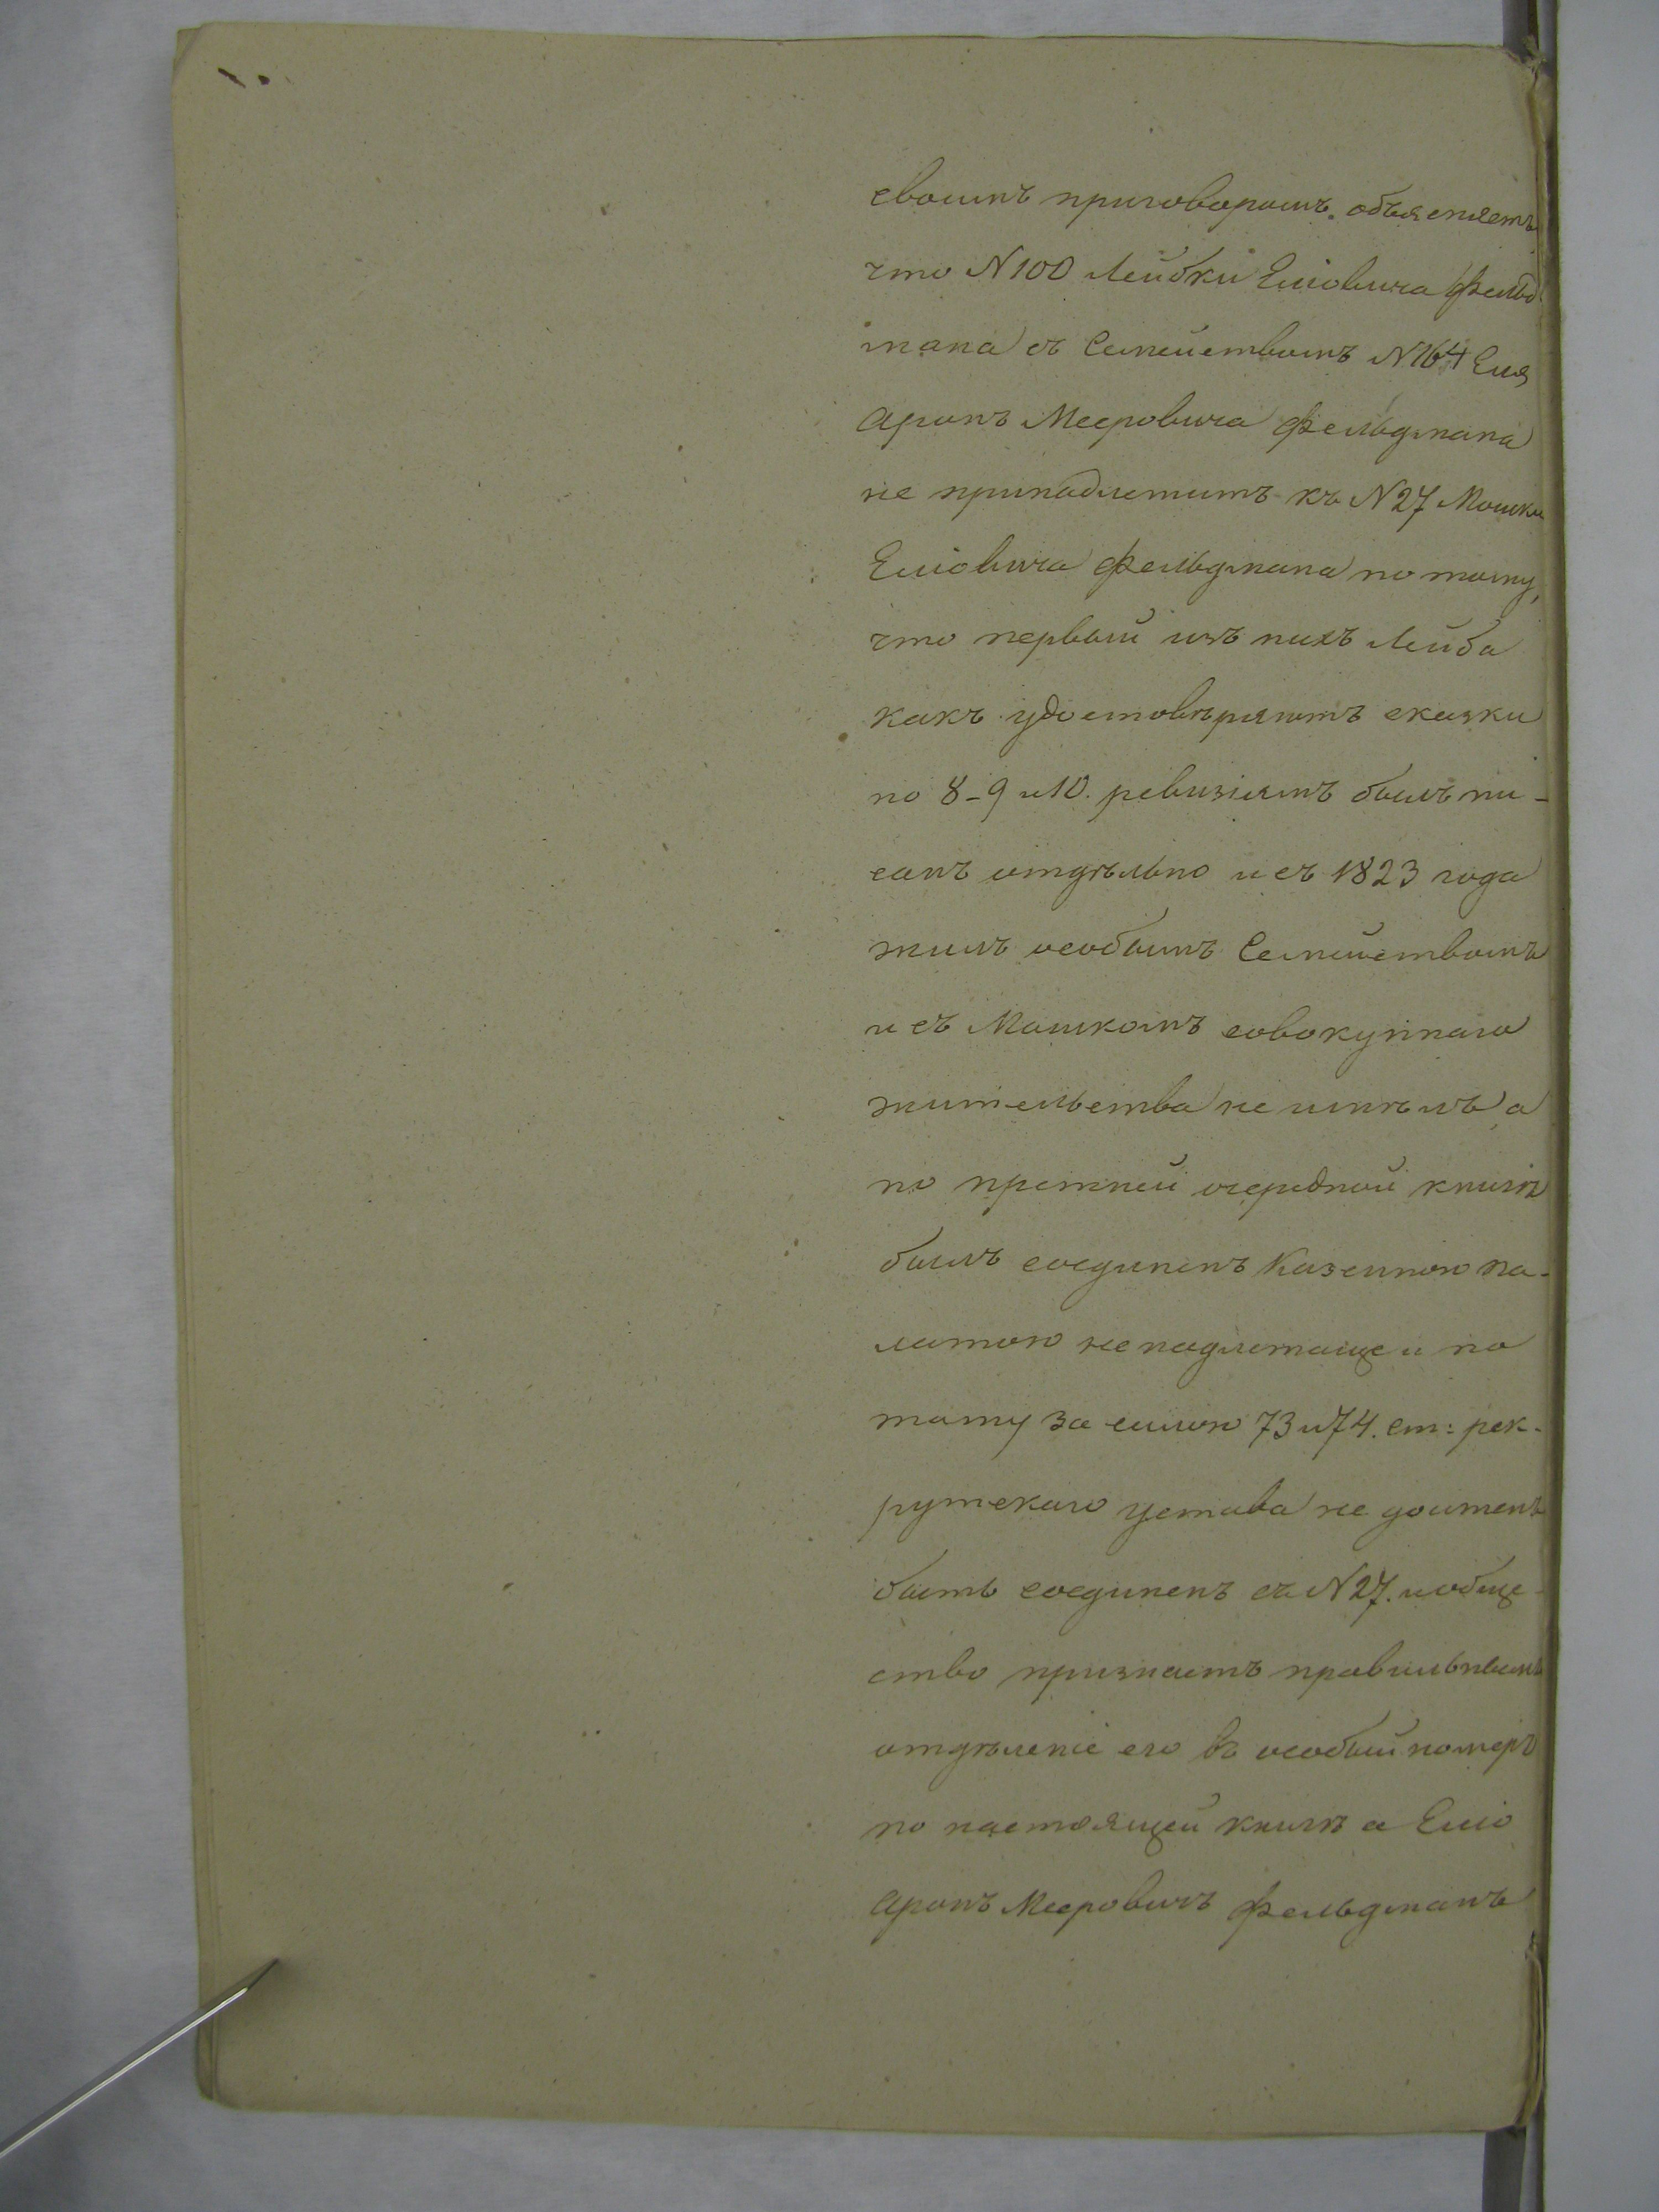 своимъ приговоромъ объясняетъ
что N 100 Лейбки Еліовича Фельд
мана съ Семействомъ N 164 Еля
Аронъ Мееровича Фельдмана
не принадлежитъ къ N 27 Мошки
Еліовича Фельдмана по тому,
что первый изъ нихъ Лейба
какъ удостовѣряютъ сказки
по 8-9 и 10. ревизіямъ былъ пи-
санъ отдѣльно и съ 1823 года
жилъ особымъ Семействомъ
и съ Мошкомъ совокупнаго
жительства не имѣлъ, а
по прежней очередной книгѣ
былъ соединенъ Казенною па-
латою не надлежаще и по
тому за силою 73 и 74. ст: рек-
рутскаго устава не долженъ
быть соединенъ съ N 27. и обще-
ство признаетъ правильнымъ
отдѣленіе его въ особый номеръ
по настоящей книгѣ а Еліо
Аронъ Мееровичъ Фельдманъ